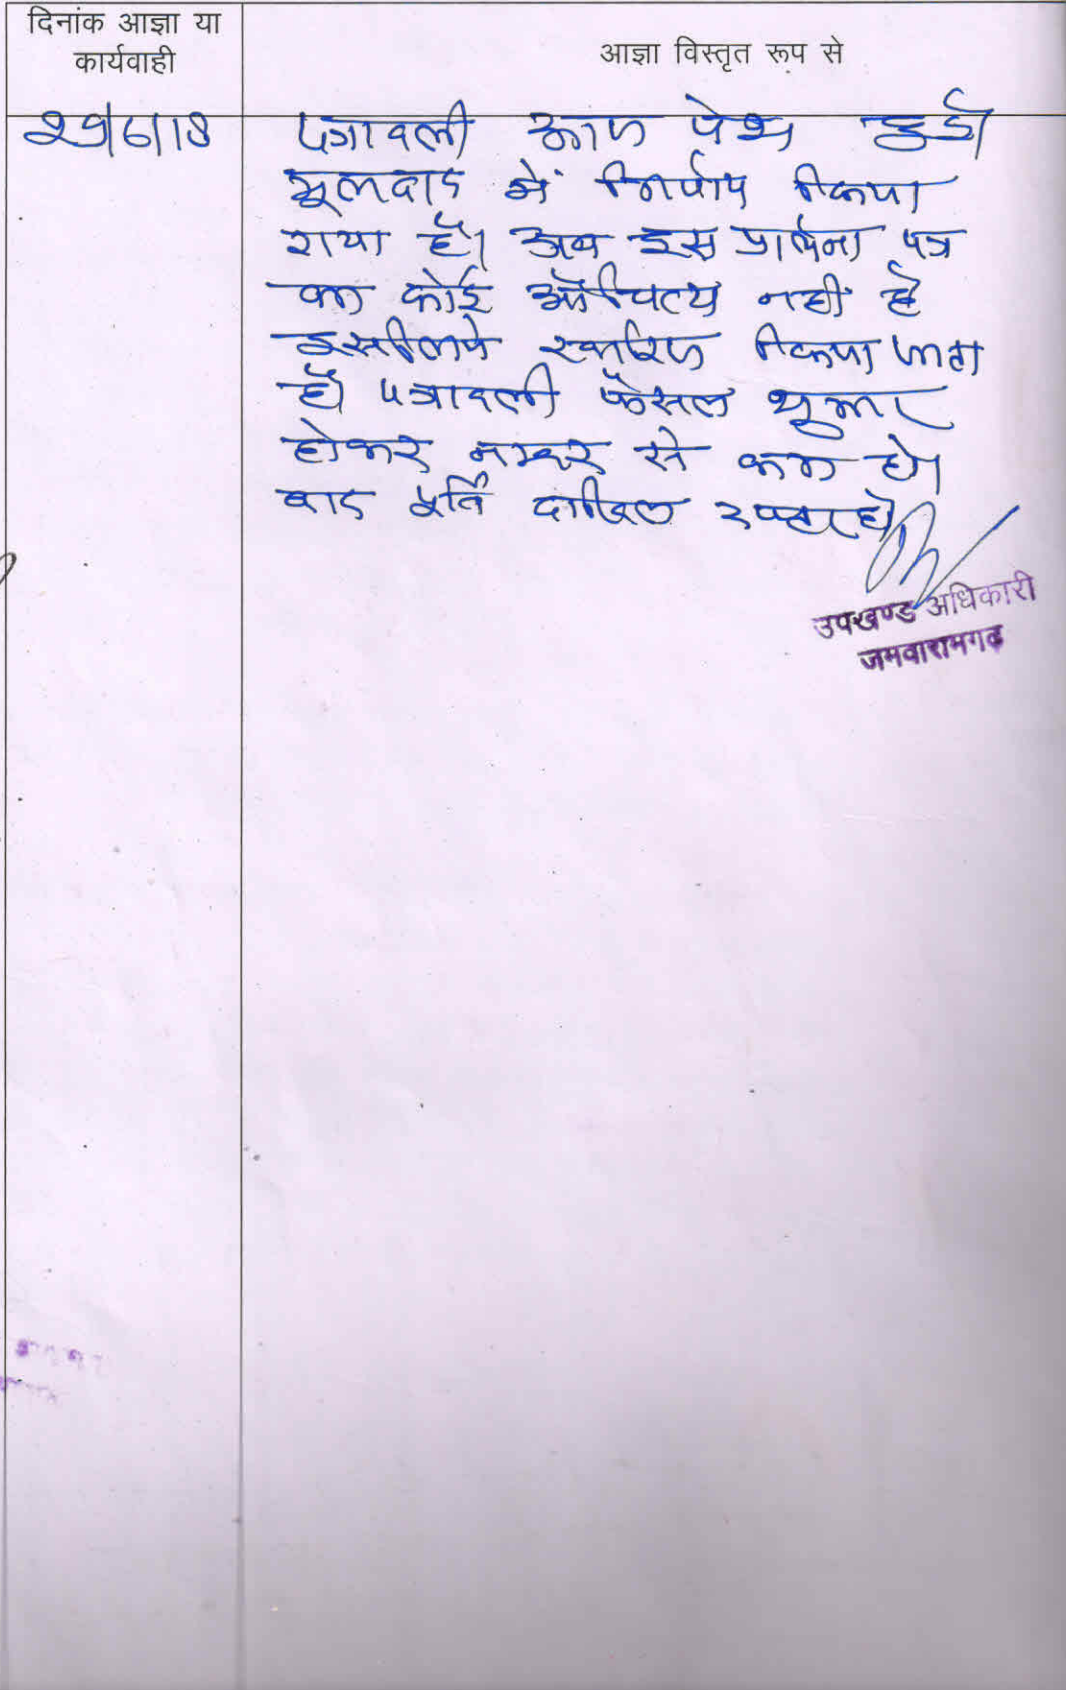 दिनांक आज्ञा या
कार्यवाही
आज्ञा विस्तृत रूप से
29/6/18
पत्रावली आज पेश हुई।
मूलवाद में निर्णय किया
गया है। अब इस प्रार्थना पत्र
का कोई औचित्य नहीं है
इसलिये खारिज किया जाता
है पत्रावली फैसल शुमार
होकर नम्बर से कम हो।
बाद पूर्ति दाखिल दफ्तर हो
उपखण्ड अधिकारी
जमवारामगढ़